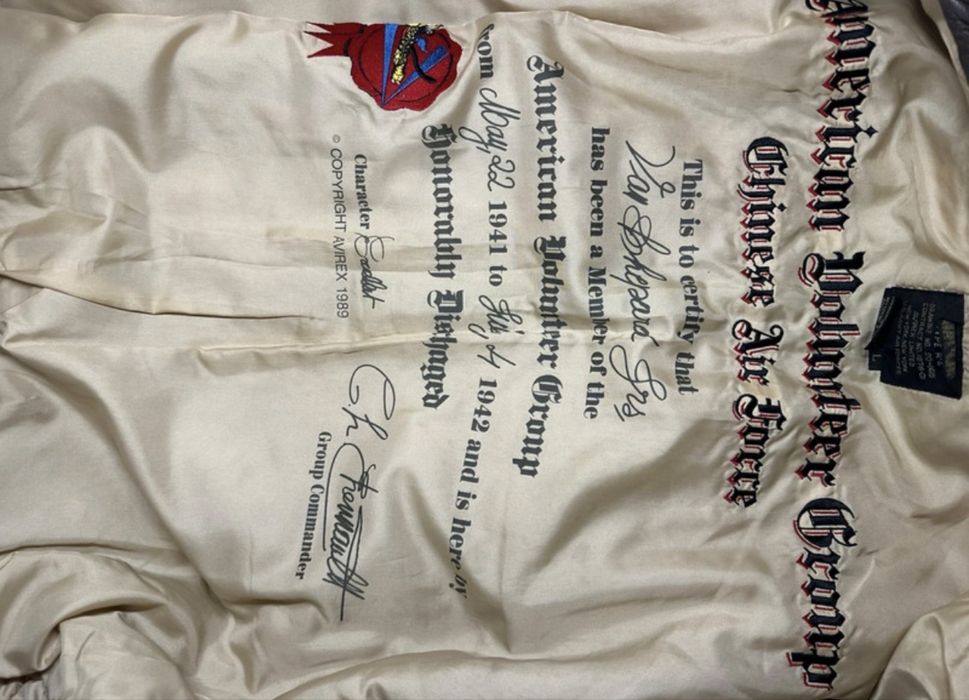 American Volunteer Group
Chinese Air Force
This is to certify that
Van Shapard Jrs
has been a Member of the
American Volunteer Group
from May 22 1941 to July 4 1942 and is hereby
Honorably Dischaged
Character Excellent
Group Commander
© COPYRIGHT AVIREX 1989
L